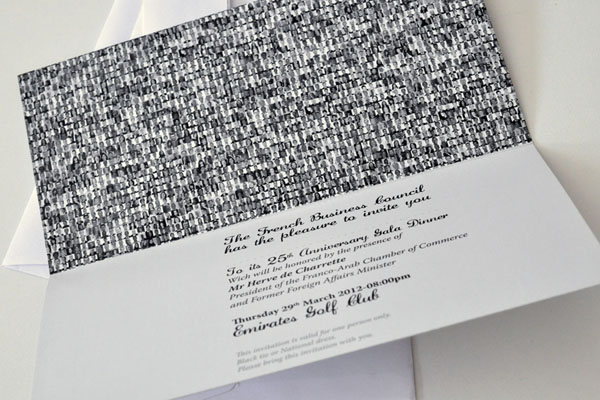 The French Business Council
has the pleasure to invite you
To its 25th Anniversary Gala Dinner
Wich will be honored by the presence of
Mr Herve de Charrette
President of the Franco-Arab Chamber of Commerce
and Former Foreign Affairs Minister
Thursday 29th March 2012-08:00pm
Emirates Golf Club
This invitation is valid for one person only.
Black tie or National dress.
Please bring this invitation with you.